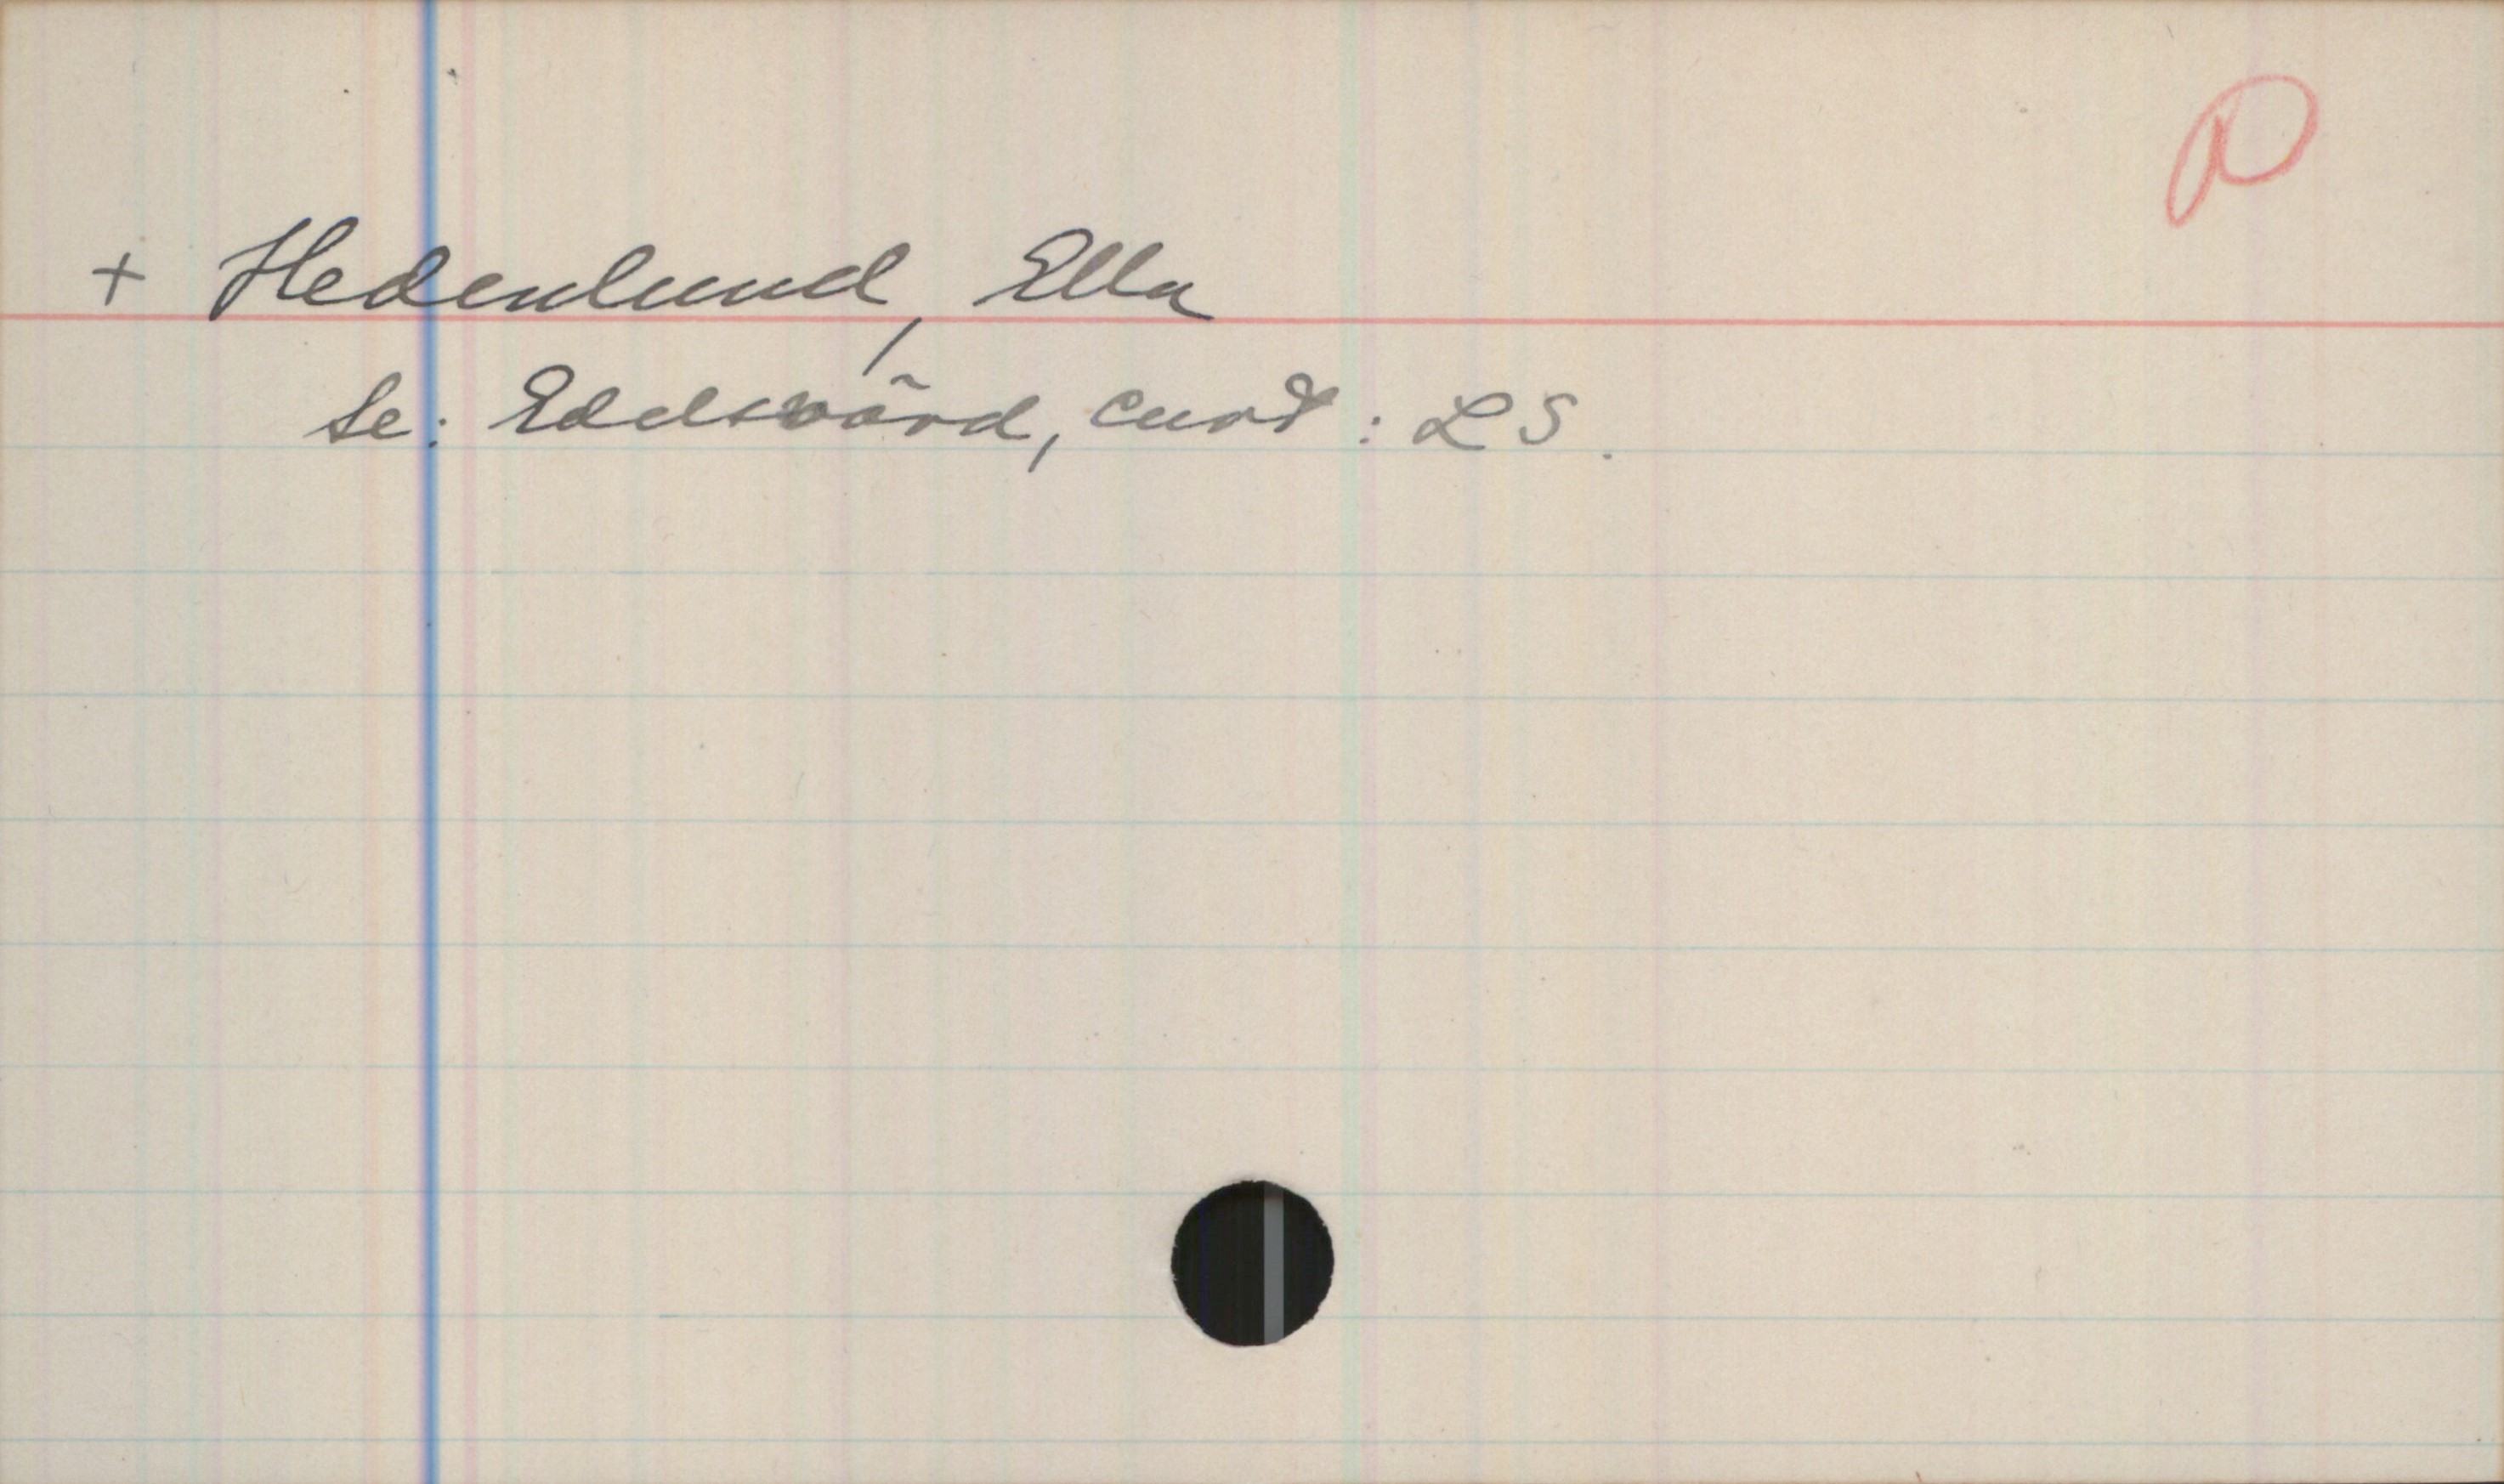 P
+ Hedenlund, Ella
se: Edelsvärd, Curt : LS.